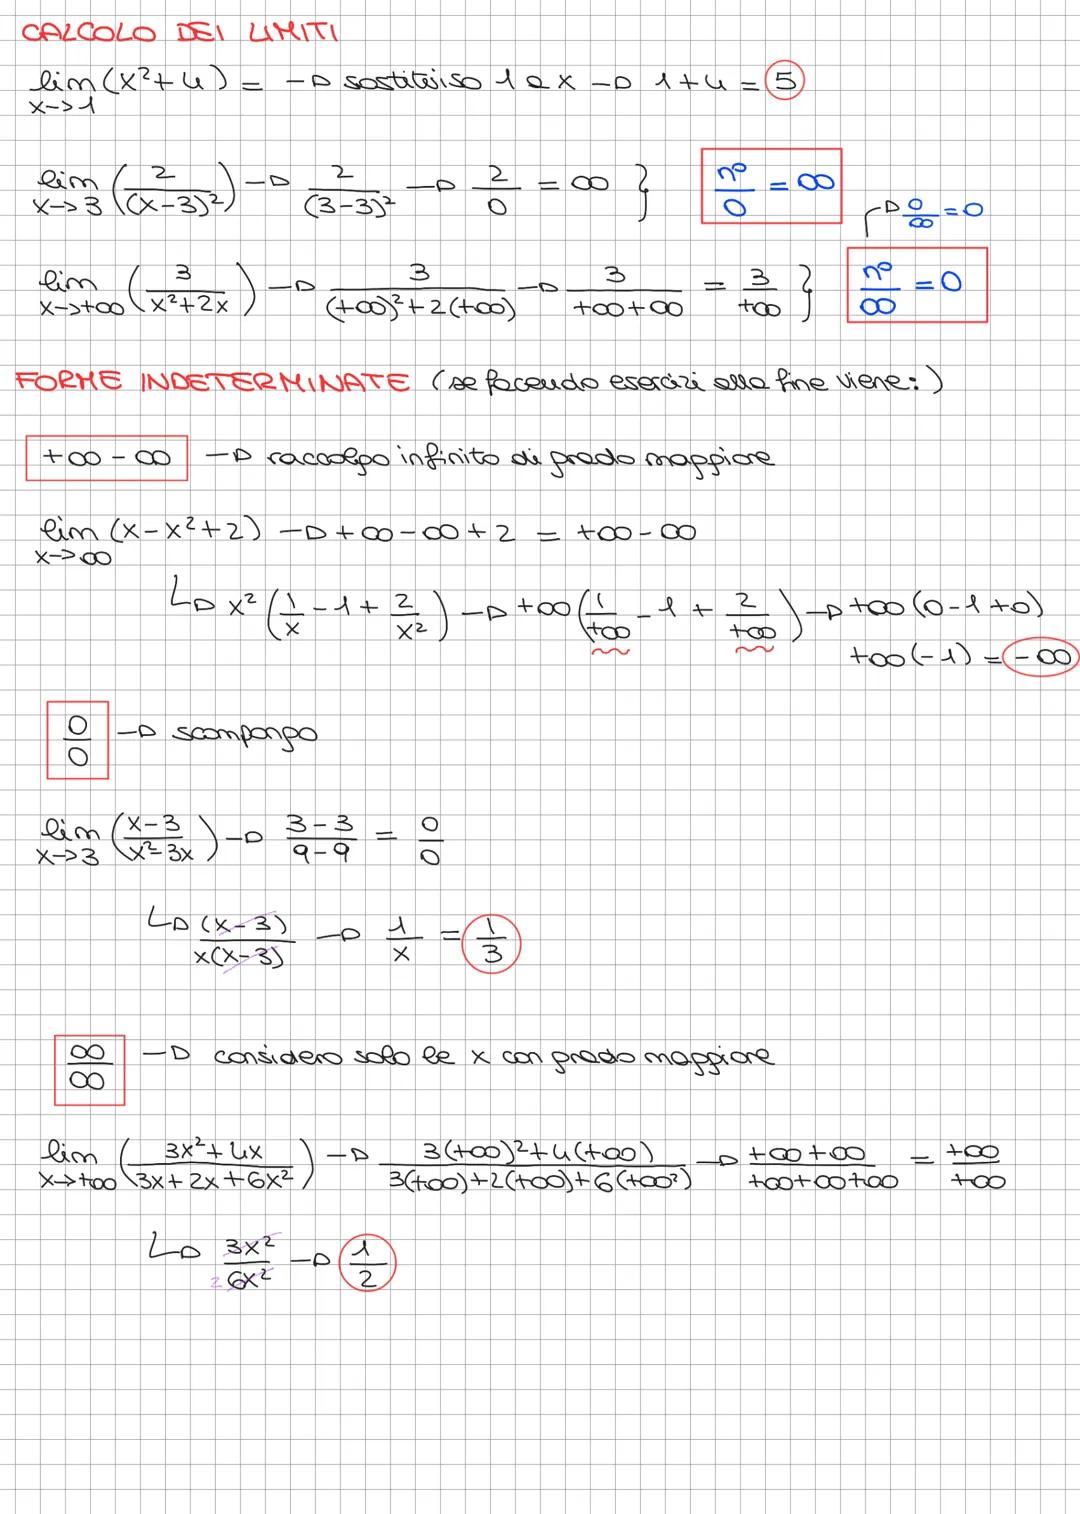 CALCOLO DEI LIMITI
lim (x²+4) = → sostituisco 1 a x → 1+4 = 5
x→1
lim (2/(x-3)²) → 2/(3-3)² → 2/0 = ∞ } n°/0 = ∞
x→3
→ 0/∞ = 0
lim (3/(x²+2x)) → 3/((+∞)²+2(+∞)) → 3/(+∞+∞) = 3/+∞ } n°/∞ = 0
x→+∞
FORME INDETERMINATE (se facendo esercizi alla fine viene:)
+∞-∞ → raccolgo infinito di grado maggiore
lim (x-x²+2) → +∞-∞+2 = +∞-∞
x→∞
↳ x²(1/x - 1 + 2/x²) → +∞(1/+∞ - 1 + 2/+∞) → +∞(0-1+0)
+∞(-1) = -∞
0/0 → scompongo
lim ((x-3)/(x²-3x)) → (3-3)/(9-9) = 0/0
x→3
↳ (x-3)/(x(x-3)) → 1/x = 1/3
∞/∞ → considero solo le x con grado maggiore
lim ((3x²+4x)/(3x+2x+6x²)) → (3(+∞)²+4(+∞))/(3(+∞)+2(+∞)+6(+∞²)) → (+∞+∞)/(+∞+∞+∞) = +∞/+∞
x→+∞
↳ 3x²/6x² → 1/2
2